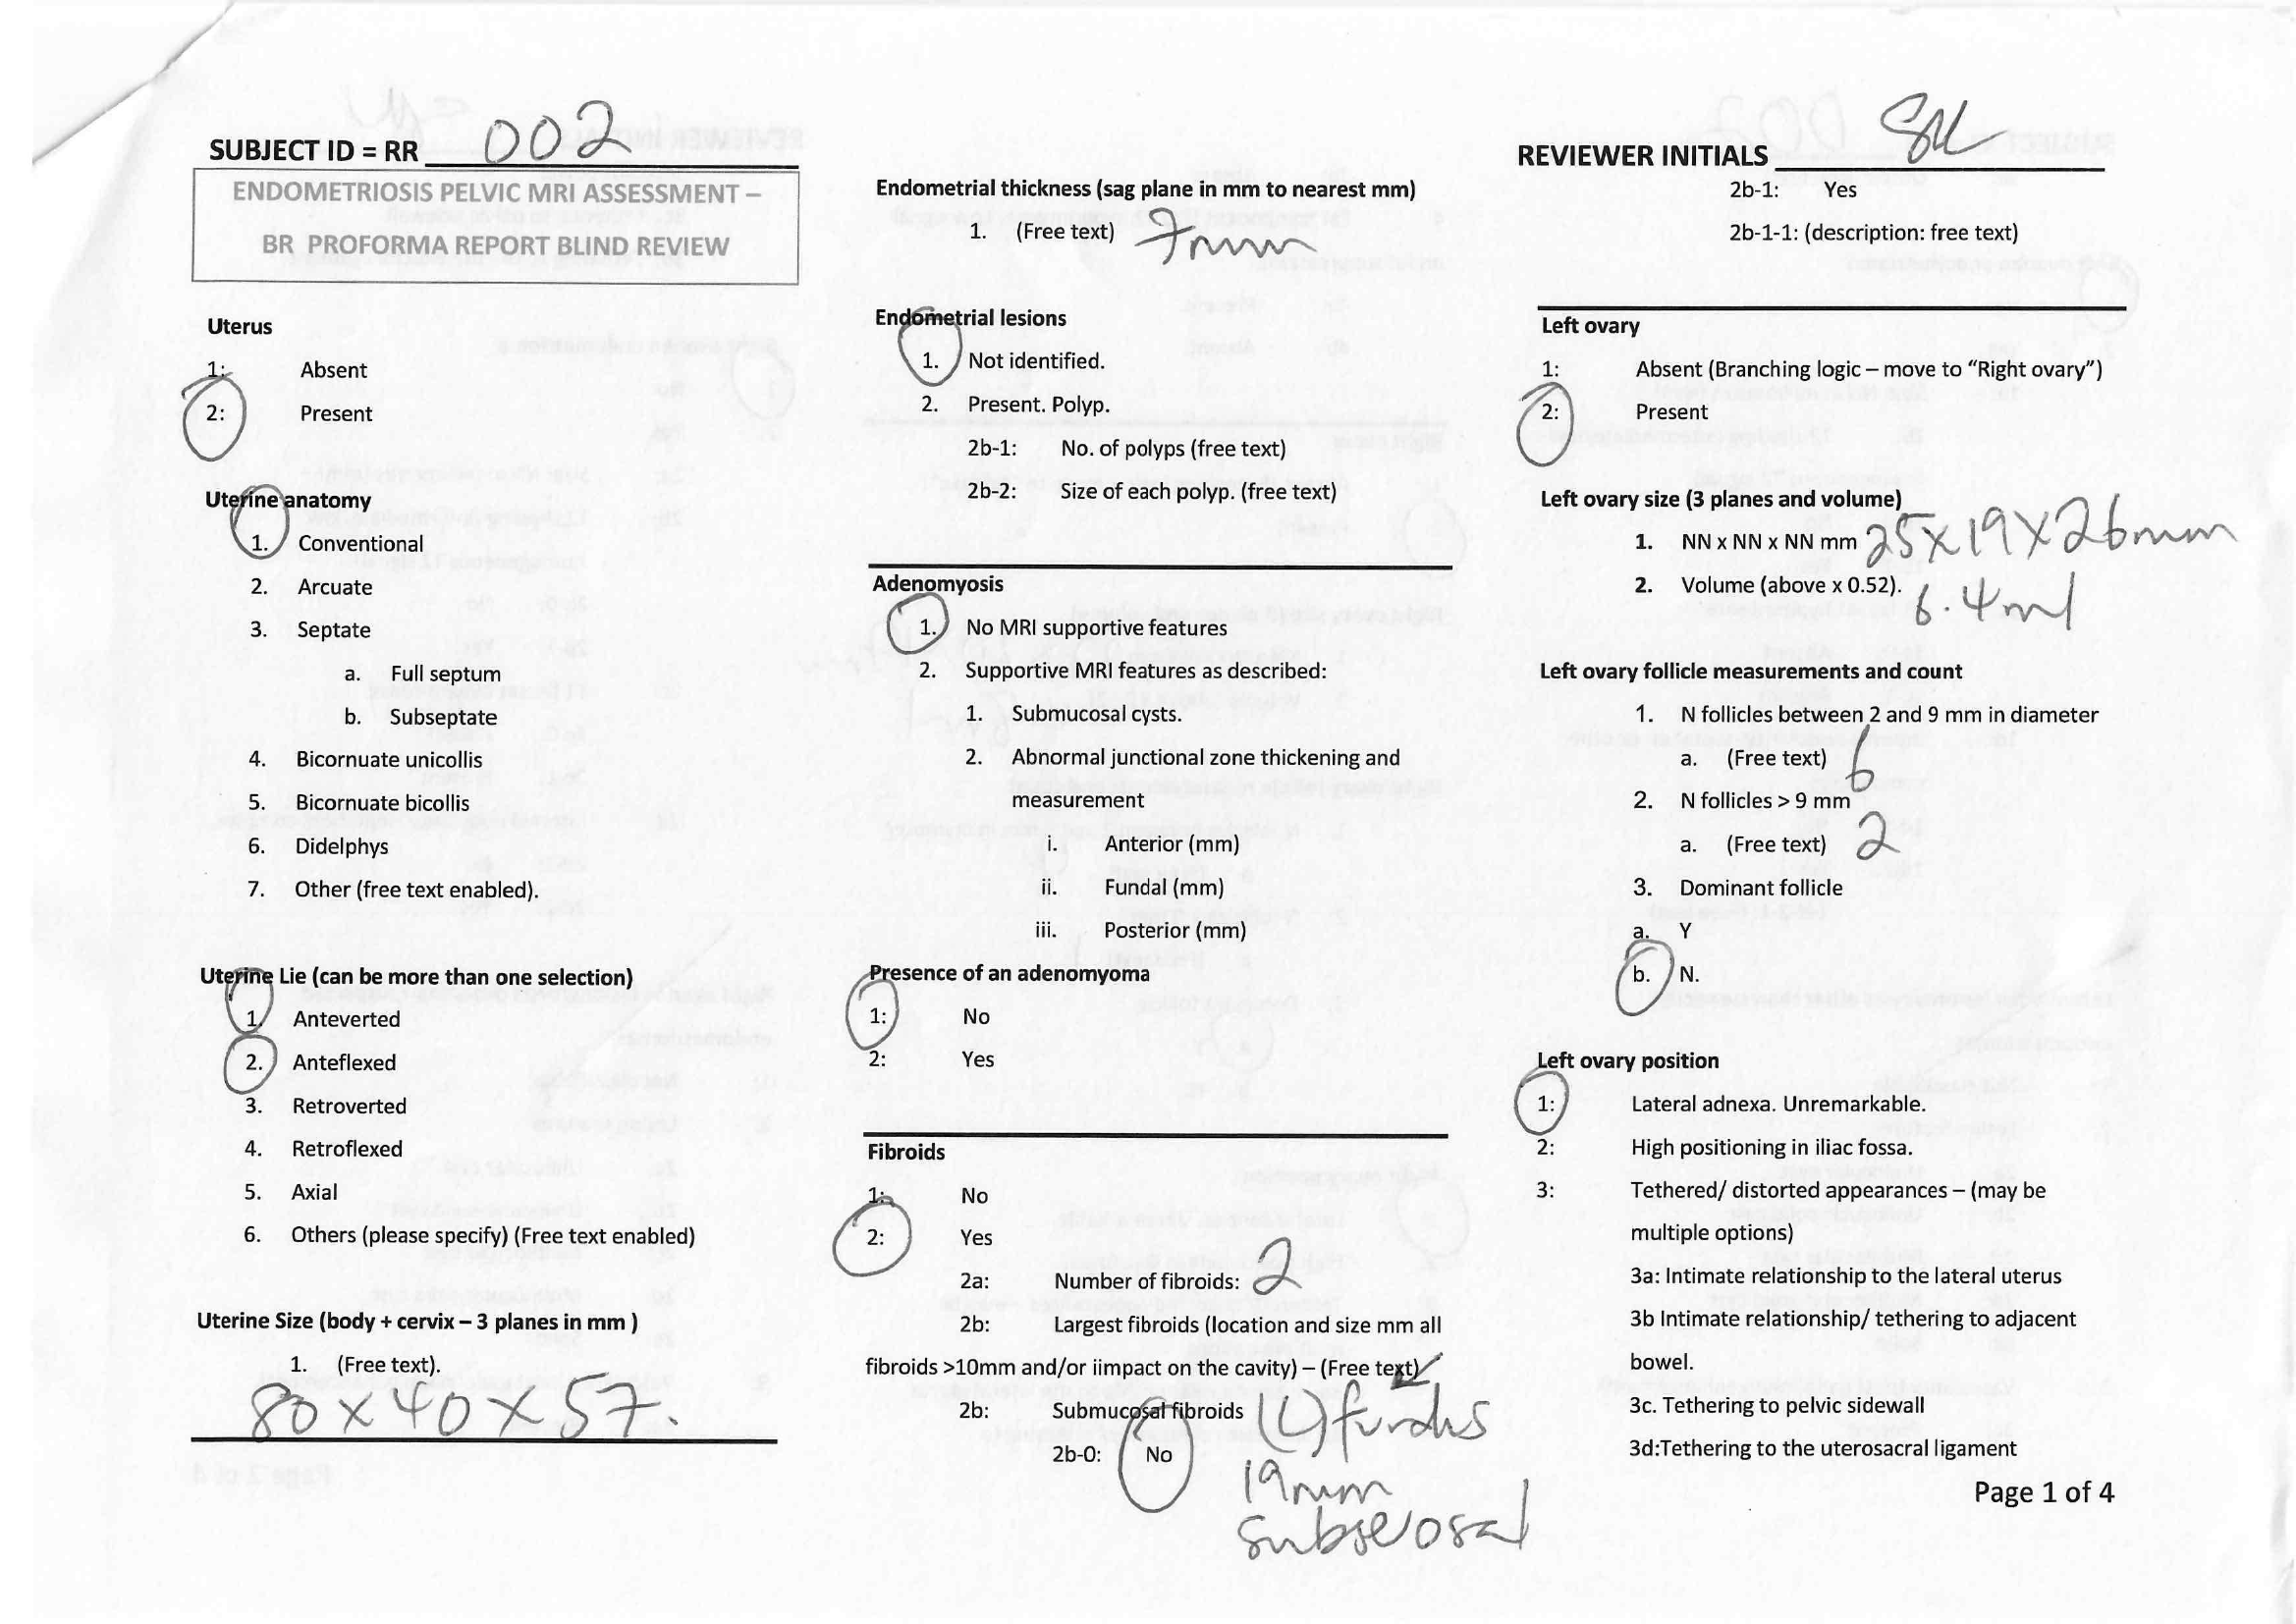 SUBJECT ID = RR 002
ENDOMETRIOSIS PELVIC MRI ASSESSMENT –
BR PROFORMA REPORT BLIND REVIEW
Uterus
1: Absent
2: Present
Uterine anatomy
1. Conventional
2. Arcuate
3. Septate
a. Full septum
b. Subseptate
4. Bicornuate unicollis
5. Bicornuate bicollis
6. Didelphys
7. Other (free text enabled).
Uterine Lie (can be more than one selection)
1. Anteverted
2. Anteflexed
3. Retroverted
4. Retroflexed
5. Axial
6. Others (please specify) (Free text enabled)
Uterine Size (body + cervix – 3 planes in mm )
1. (Free text).
80 x 40 x 57.
Endometrial thickness (sag plane in mm to nearest mm)
1. (Free text) 7mm
Endometrial lesions
1. Not identified.
2. Present. Polyp.
2b-1: No. of polyps (free text)
2b-2: Size of each polyp. (free text)
Adenomyosis
1. No MRI supportive features
2. Supportive MRI features as described:
1. Submucosal cysts.
2. Abnormal junctional zone thickening and
measurement
i. Anterior (mm)
ii. Fundal (mm)
iii. Posterior (mm)
Presence of an adenomyoma
1: No
2: Yes
Fibroids
1: No
2: Yes
2a: Number of fibroids: 2
2b: Largest fibroids (location and size mm all
fibroids >10mm and/or iimpact on the cavity) – (Free text)
2b: Submucosal fibroids (L) fundus
2b-0: No 19mm
subserosal
REVIEWER INITIALS
2b-1: Yes
2b-1-1: (description: free text)
Left ovary
1: Absent (Branching logic – move to “Right ovary”)
2: Present
Left ovary size (3 planes and volume)
1. NN x NN x NN mm 25x19x26mm
2. Volume (above x 0.52). 6.4ml
Left ovary follicle measurements and count
1. N follicles between 2 and 9 mm in diameter
a. (Free text) 6
2. N follicles > 9 mm
a. (Free text) 2
3. Dominant follicle
a. Y
b. N.
Left ovary position
1: Lateral adnexa. Unremarkable.
2: High positioning in iliac fossa.
3: Tethered/ distorted appearances – (may be
multiple options)
3a: Intimate relationship to the lateral uterus
3b Intimate relationship/ tethering to adjacent
bowel.
3c. Tethering to pelvic sidewall
3d:Tethering to the uterosacral ligament
Page 1 of 4